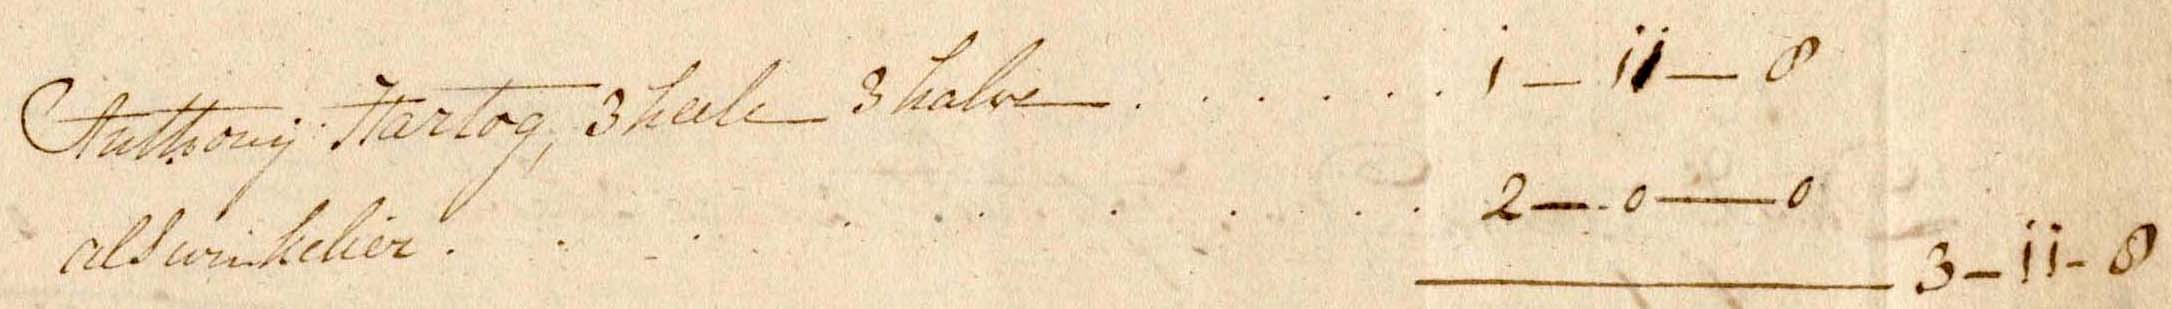 Anthonij Hartog, 3 heele 3 halve . . . . . . 1 – 11 – 8
als winkelier . . . . . . . . . 2 – 0 – 0
3 – 11 – 8